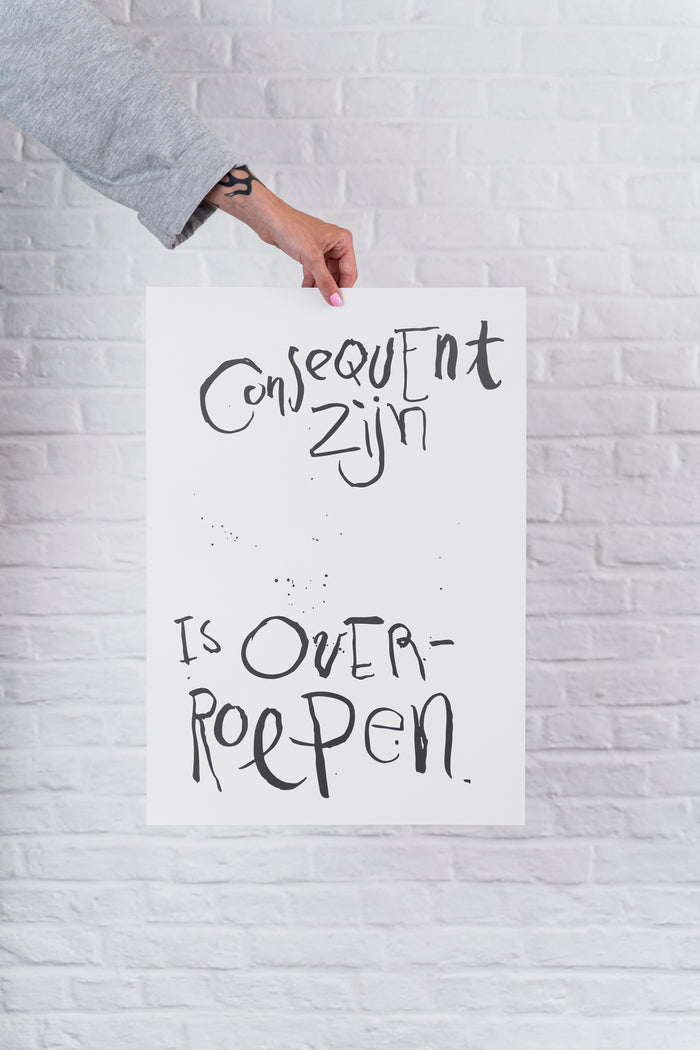 ConsequEnt
zijn
Is OvER-
RoepEn.